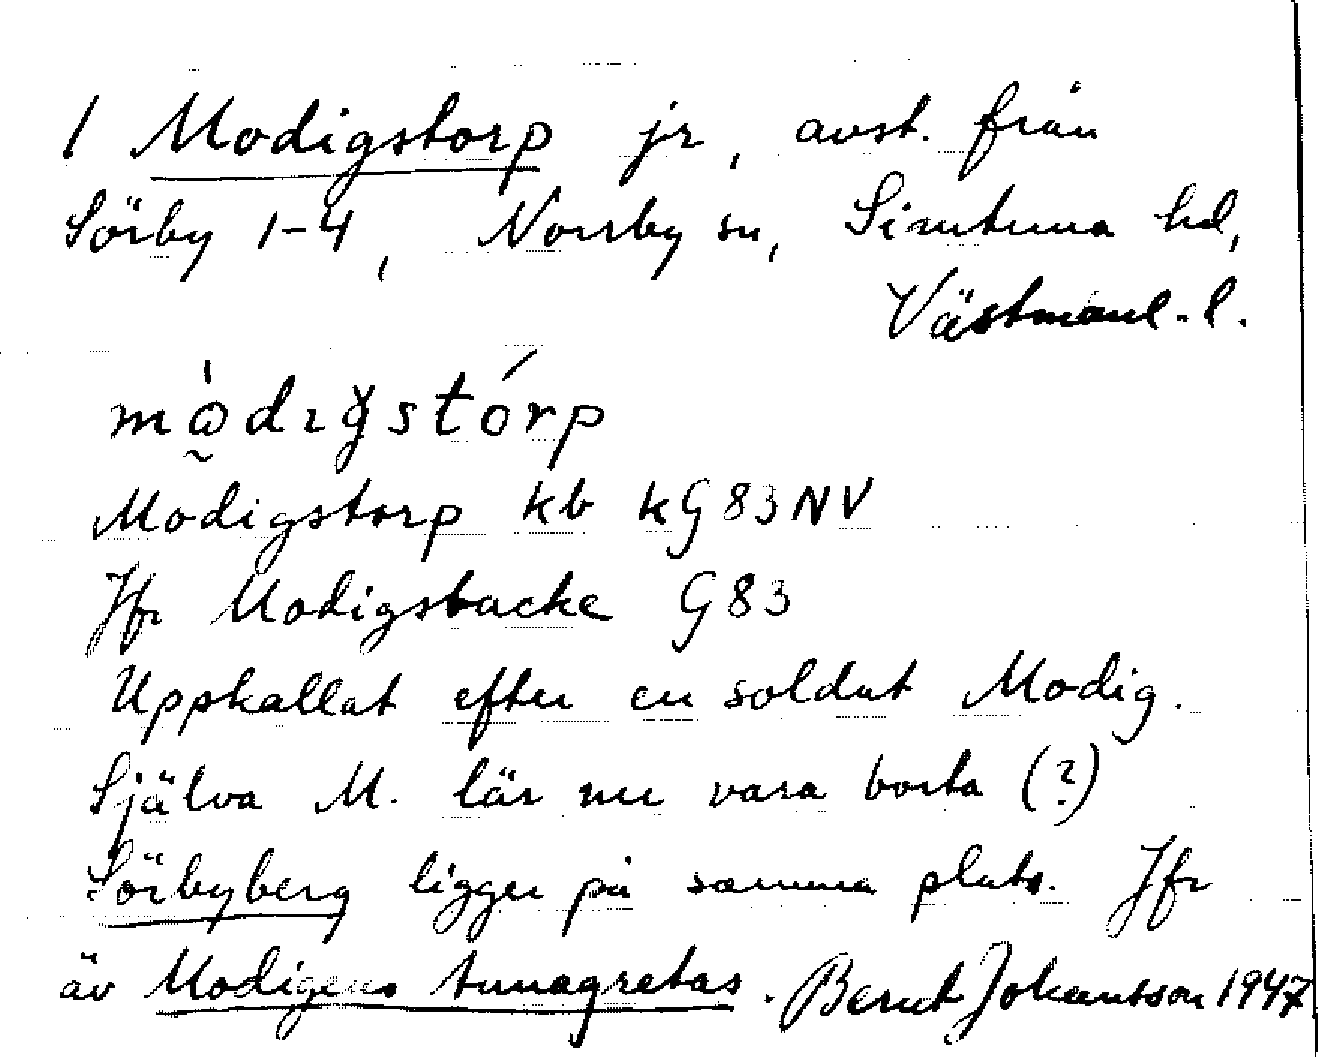 1 Modigstorp jr, avst. från
Sörby 1-4, Norrby sn, Simtuna hd,
Västmanl. l.
mọ̀dıgstórp
Modigstorp kb kG83NV
Jfr Modigsbacke G83
Uppkallat efter en soldat Modig.
Själva M. lär nu vara borta (?)
Sörbyberg ligger på samma plats. Jfr
äv Modigens Annagretas. Bernt Johansson 1947